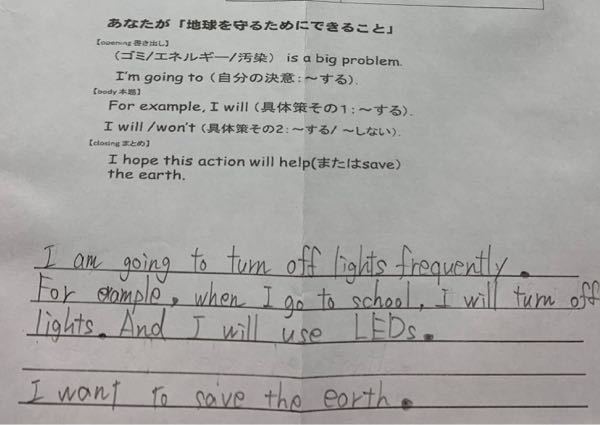 あなたが「地球を守るためにできること」
【opening 書き出し】
（ゴミ/エネルギー/汚染） is a big problem.
I'm going to（自分の決意：～する）.
【body 本題】
For example, I will（具体策その1：～する）.
I will /won't（具体策その2：～する/ ～しない）.
【closing まとめ】
I hope this action will help(またはsave)
the earth.
I am going to turn off lights frequently.
For example, when I go to school, I will turn off
lights. And I will use LEDs.
I want to save the earth.